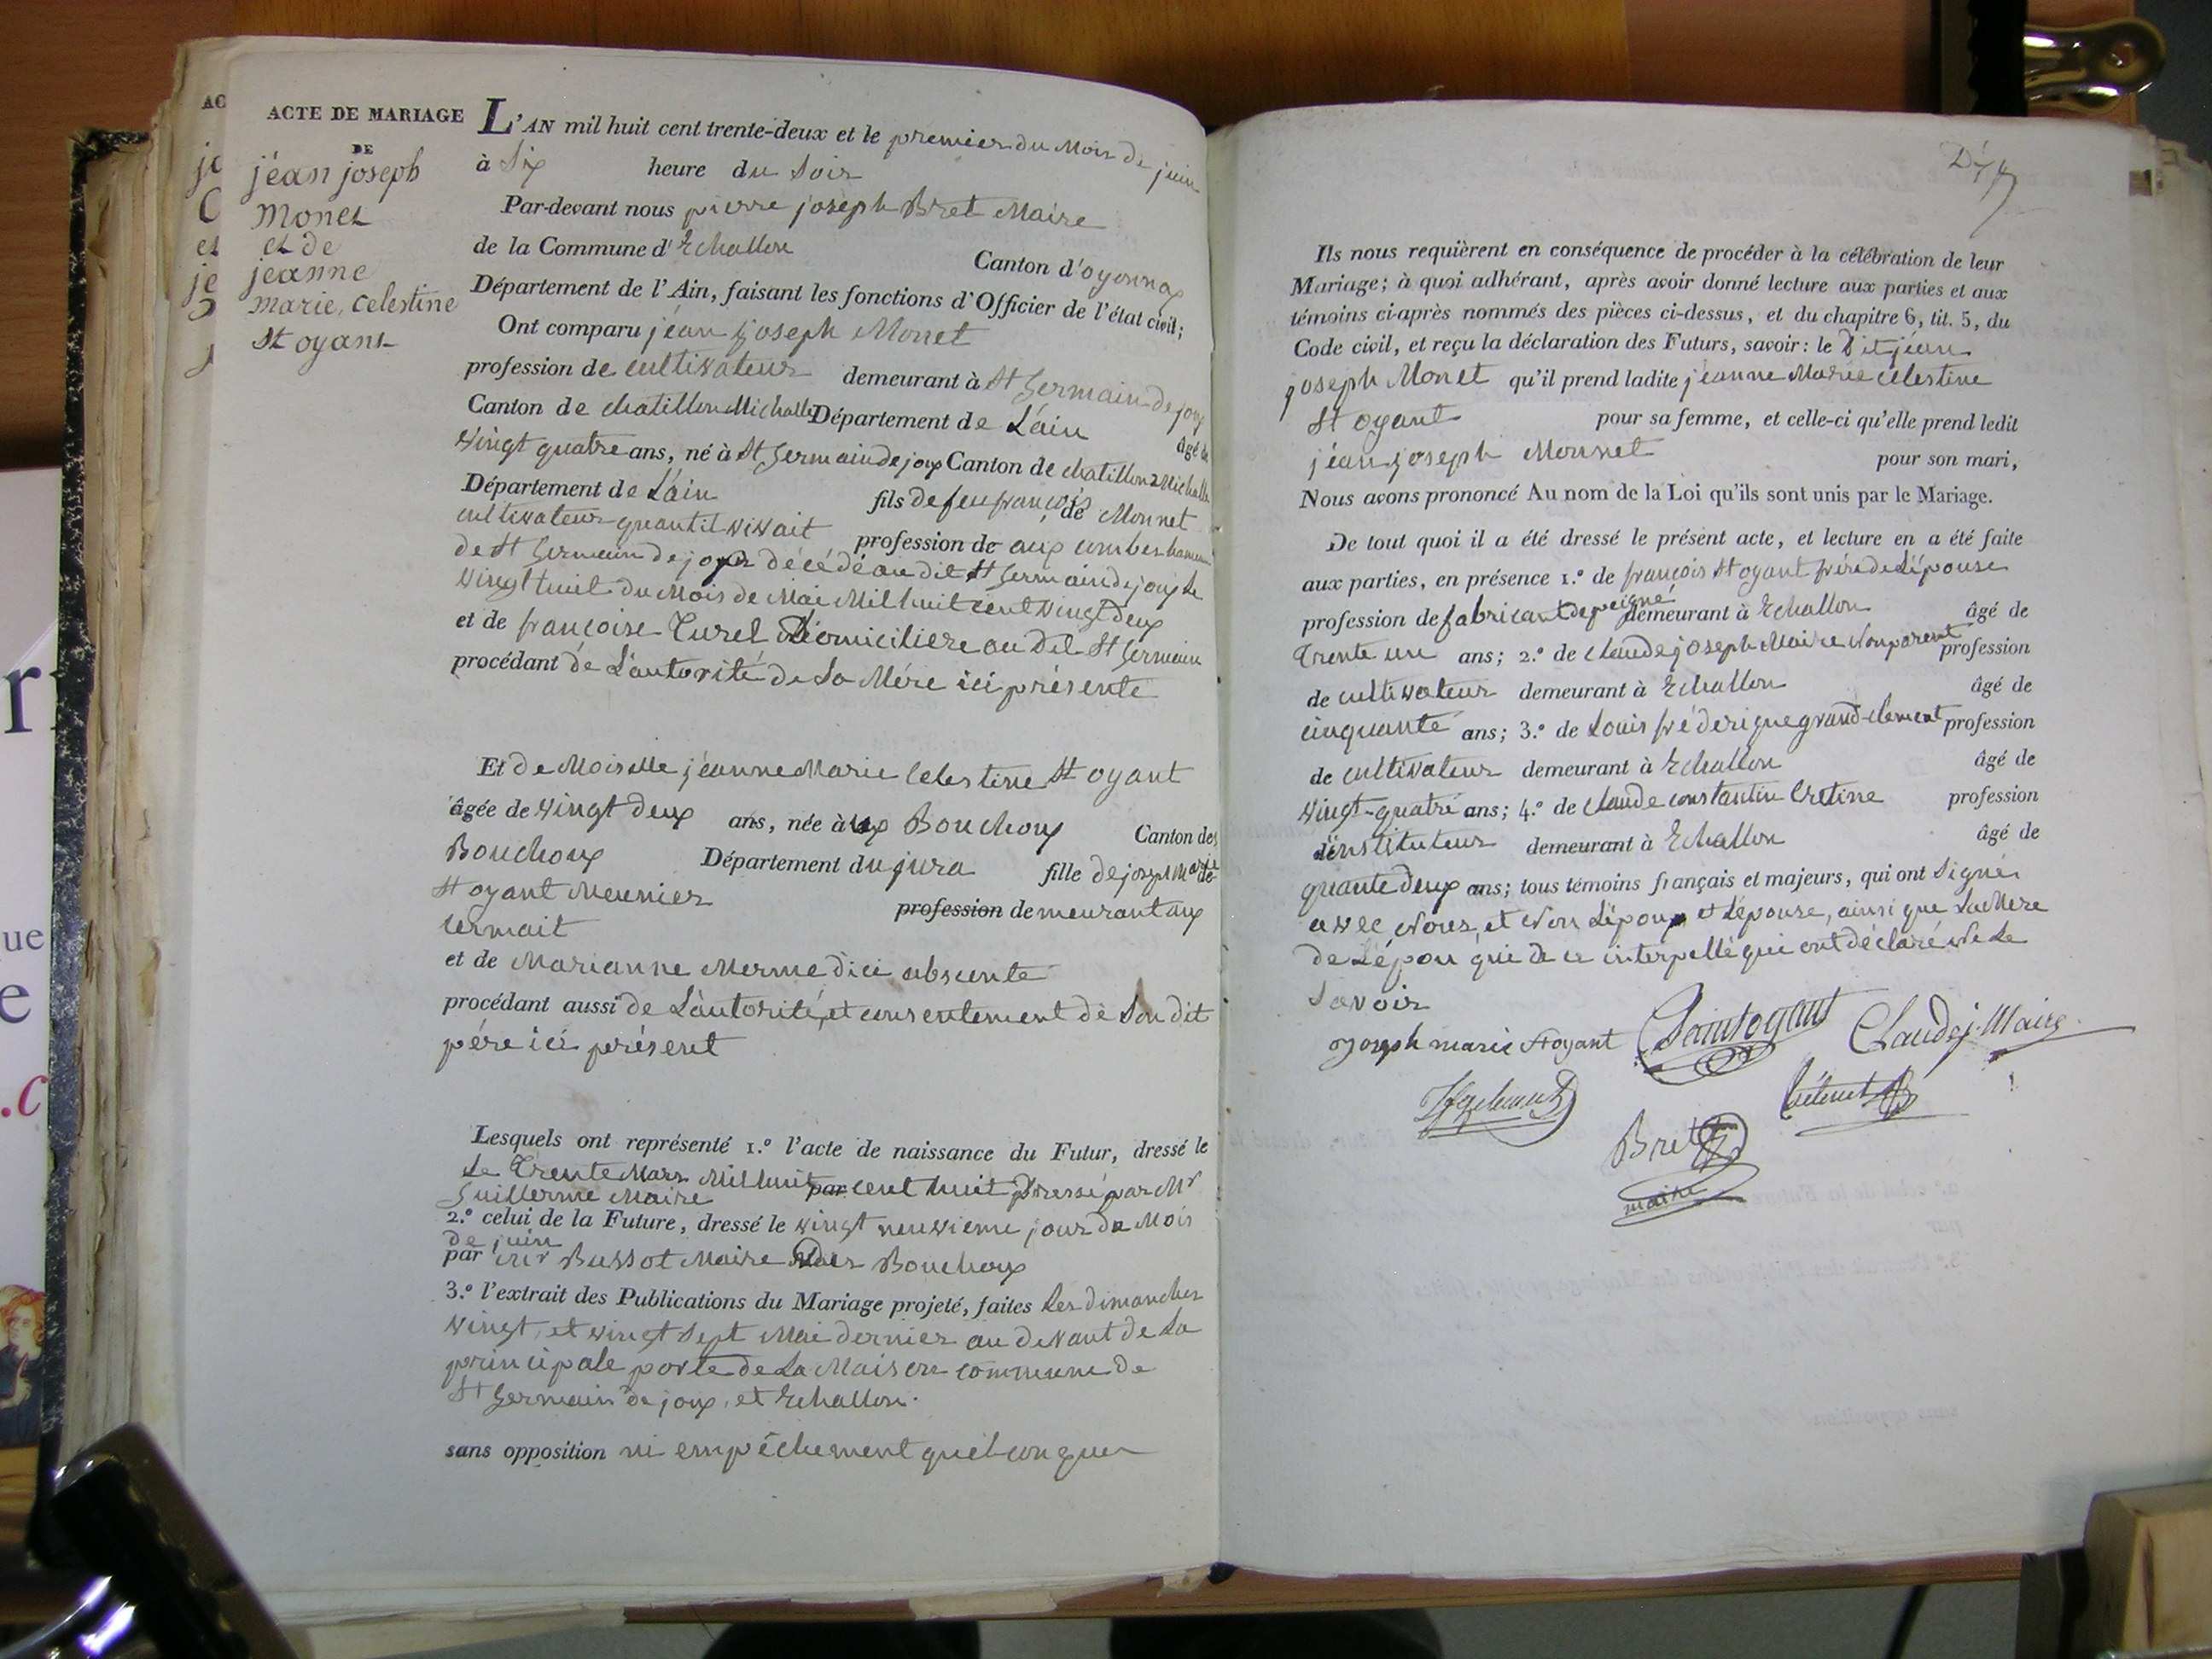 ACTE DE MARIAGE
DE
jéan joseph
Monet
et de
jeanne
marie, celestine
St oyant
L'AN mil huit cent trente-deux et le premier du Mois de juin
à Six heure du Soir
Par-devant nous pierre joseph Bret Maire
de la Commune d'Echallon Canton d'oyonnax
Département de l'Ain, faisant les fonctions d'Officier de l'état civil;
Ont comparu jéan joseph Monet
profession de cultivateur demeurant à St Germain de joux
Canton de chatillon Michalle Département de L'ain âgé de
vingt quatre ans, né à St Germain de joux Canton de chatillon Michalle
Département de L'ain fils de feu françois de Monnet
cultivateur quantil vivait profession de aux combes hameau
de St Germain de joux décédé au dit St Germain de joux Le
vingt huit du Mois de Mai Mil huit cent vingt deux
et de françoise Turel Domiciliere au Dit St Germain
procédant de L'autorité de Sa Mére ici présente
Et deMoiselle jéanne Marie Celestine St oyant
âgée de vingt deux ans, née à aux Bouchoux Canton des
Bouchoux Département du jura fille de joseph Marie de
St oyant Meunier profession demeurant aux
et de Marianne Mermedici absente
procédant aussi de L'autorité, et consentement de Son dit
pére ici présent
Lesquels ont représenté 1.º l'acte de naissance du Futur, dressé le
Le Trente Mars Mil huit par cent huit Dressé par Mr
Guillerme Maire
2.º celui de la Future, dressé le vingt neuvieme jour du Mois
de juin
par Mr Bussot Maire Des Bouchoux
3.º l'extrait des Publications du Mariage projeté, faites Les dimanches
vingt, et vingt Sept Mai dernier au devant de La
principale porte de La Maison commune de
St Germain de joux, et Echallon.
sans opposition ni empêchement quelconque
Ils nous requièrent en conséquence de procéder à la célébration de leur
Mariage; à quoi adhérant, après avoir donné lecture aux parties et aux
témoins ci-après nommés des pièces ci-dessus, et du chapitre 6, tit. 5, du
Code civil, et reçu la déclaration des Futurs, savoir: le Dit jéan
joseph Monet qu'il prend ladite jéanne Marie celestine
St oyant pour sa femme, et celle-ci qu'elle prend ledit
jéan joseph Monnet pour son mari,
Nous avons prononcé Au nom de la Loi qu'ils sont unis par le Mariage.
De tout quoi il a été dressé le présent acte, et lecture en a été faite
aux parties, en présence 1.º de françois St oyant frére de L'épouse
profession de fabricant de peigné demeurant à Echallon âgé de
Trente un ans; 2.º de claude joseph Maire Non parent profession
de cultivateur demeurant à Echallon âgé de
cinquante ans; 3.º de Louis fréderique grand-clement profession
de cultivateur demeurant à Echallon âgé de
vingt-quatre ans; 4.º de claude constantin Cretine profession
d'instituteur demeurant à Echallon âgé de
quante deux ans; tous témoins français et majeurs, qui ont Signé
avec Nous, et Non L'époux et L'épouse, ainsi que La Mere
de L'époux qui de ce interpellé qui ont déclaré Ne Le
Savoir
joseph marie Stoyant Saintoyant Claude j. Maire
Bret
maire